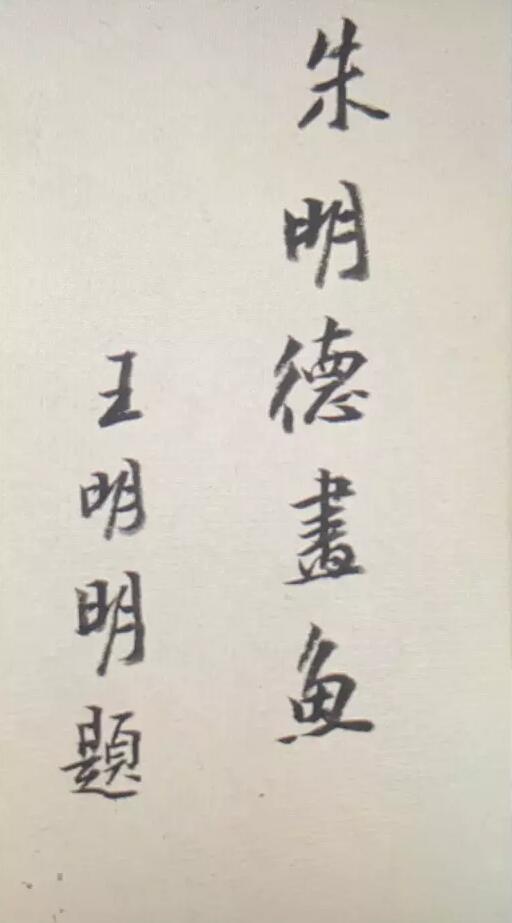 朱明德畫魚
王明明題